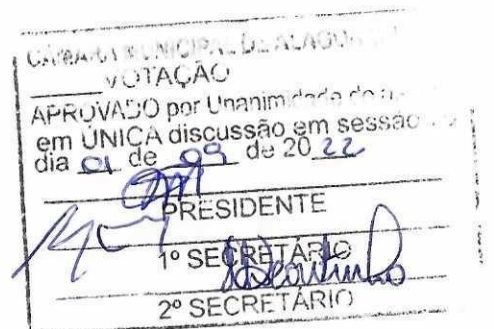 CÂMARA MUNICIPAL DE ALAGOA
VOTAÇÃO
APROVADO por Unanimidade do
em ÚNICA discussão em sessão
dia 01 de 09 de 2022
PRESIDENTE
1º SECRETÁRIO
2º SECRETÁRIO